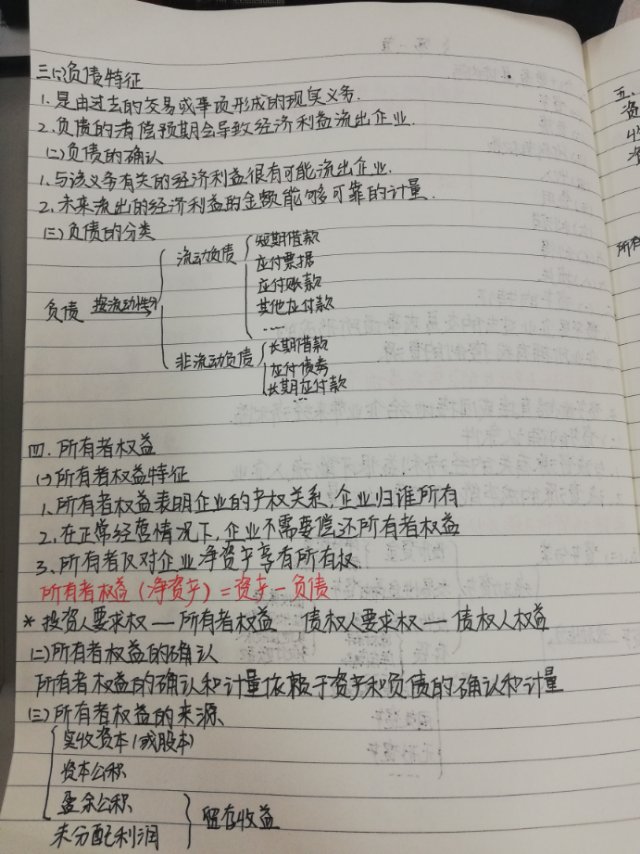 三、(一)负债特征
1.是由过去的交易或事项形成的现实义务.
2.负债的清偿预期会导致经济利益流出企业.
(二)负债的确认
1.与该义务有关的经济利益很有可能流出企业.
2.未来流出的经济利益的金额能够可靠的计量.
(三)负债的分类
负债 按流动性分
流动负债
短期借款
应付票据
应付账款
其他应付款
……
非流动负债
长期借款
应付债券
长期应付款
四.所有者权益
(一)所有者权益特征
1.所有者权益表明企业的产权关系,企业归谁所有
2.在正常经营情况下,企业不需要偿还所有者权益
3.所有者仅对企业净资产享有所有权.
所有者权益(净资产)=资产-负债
*投资人要求权—所有者权益 债权人要求权—债权人权益
(二)所有者权益的确认
所有者权益的确认和计量依赖于资产和负债的确认和计量
(三)所有者权益的来源
实收资本(或股本)
资本公积
盈余公积
未分配利润
留存收益
五、
资
资
所有